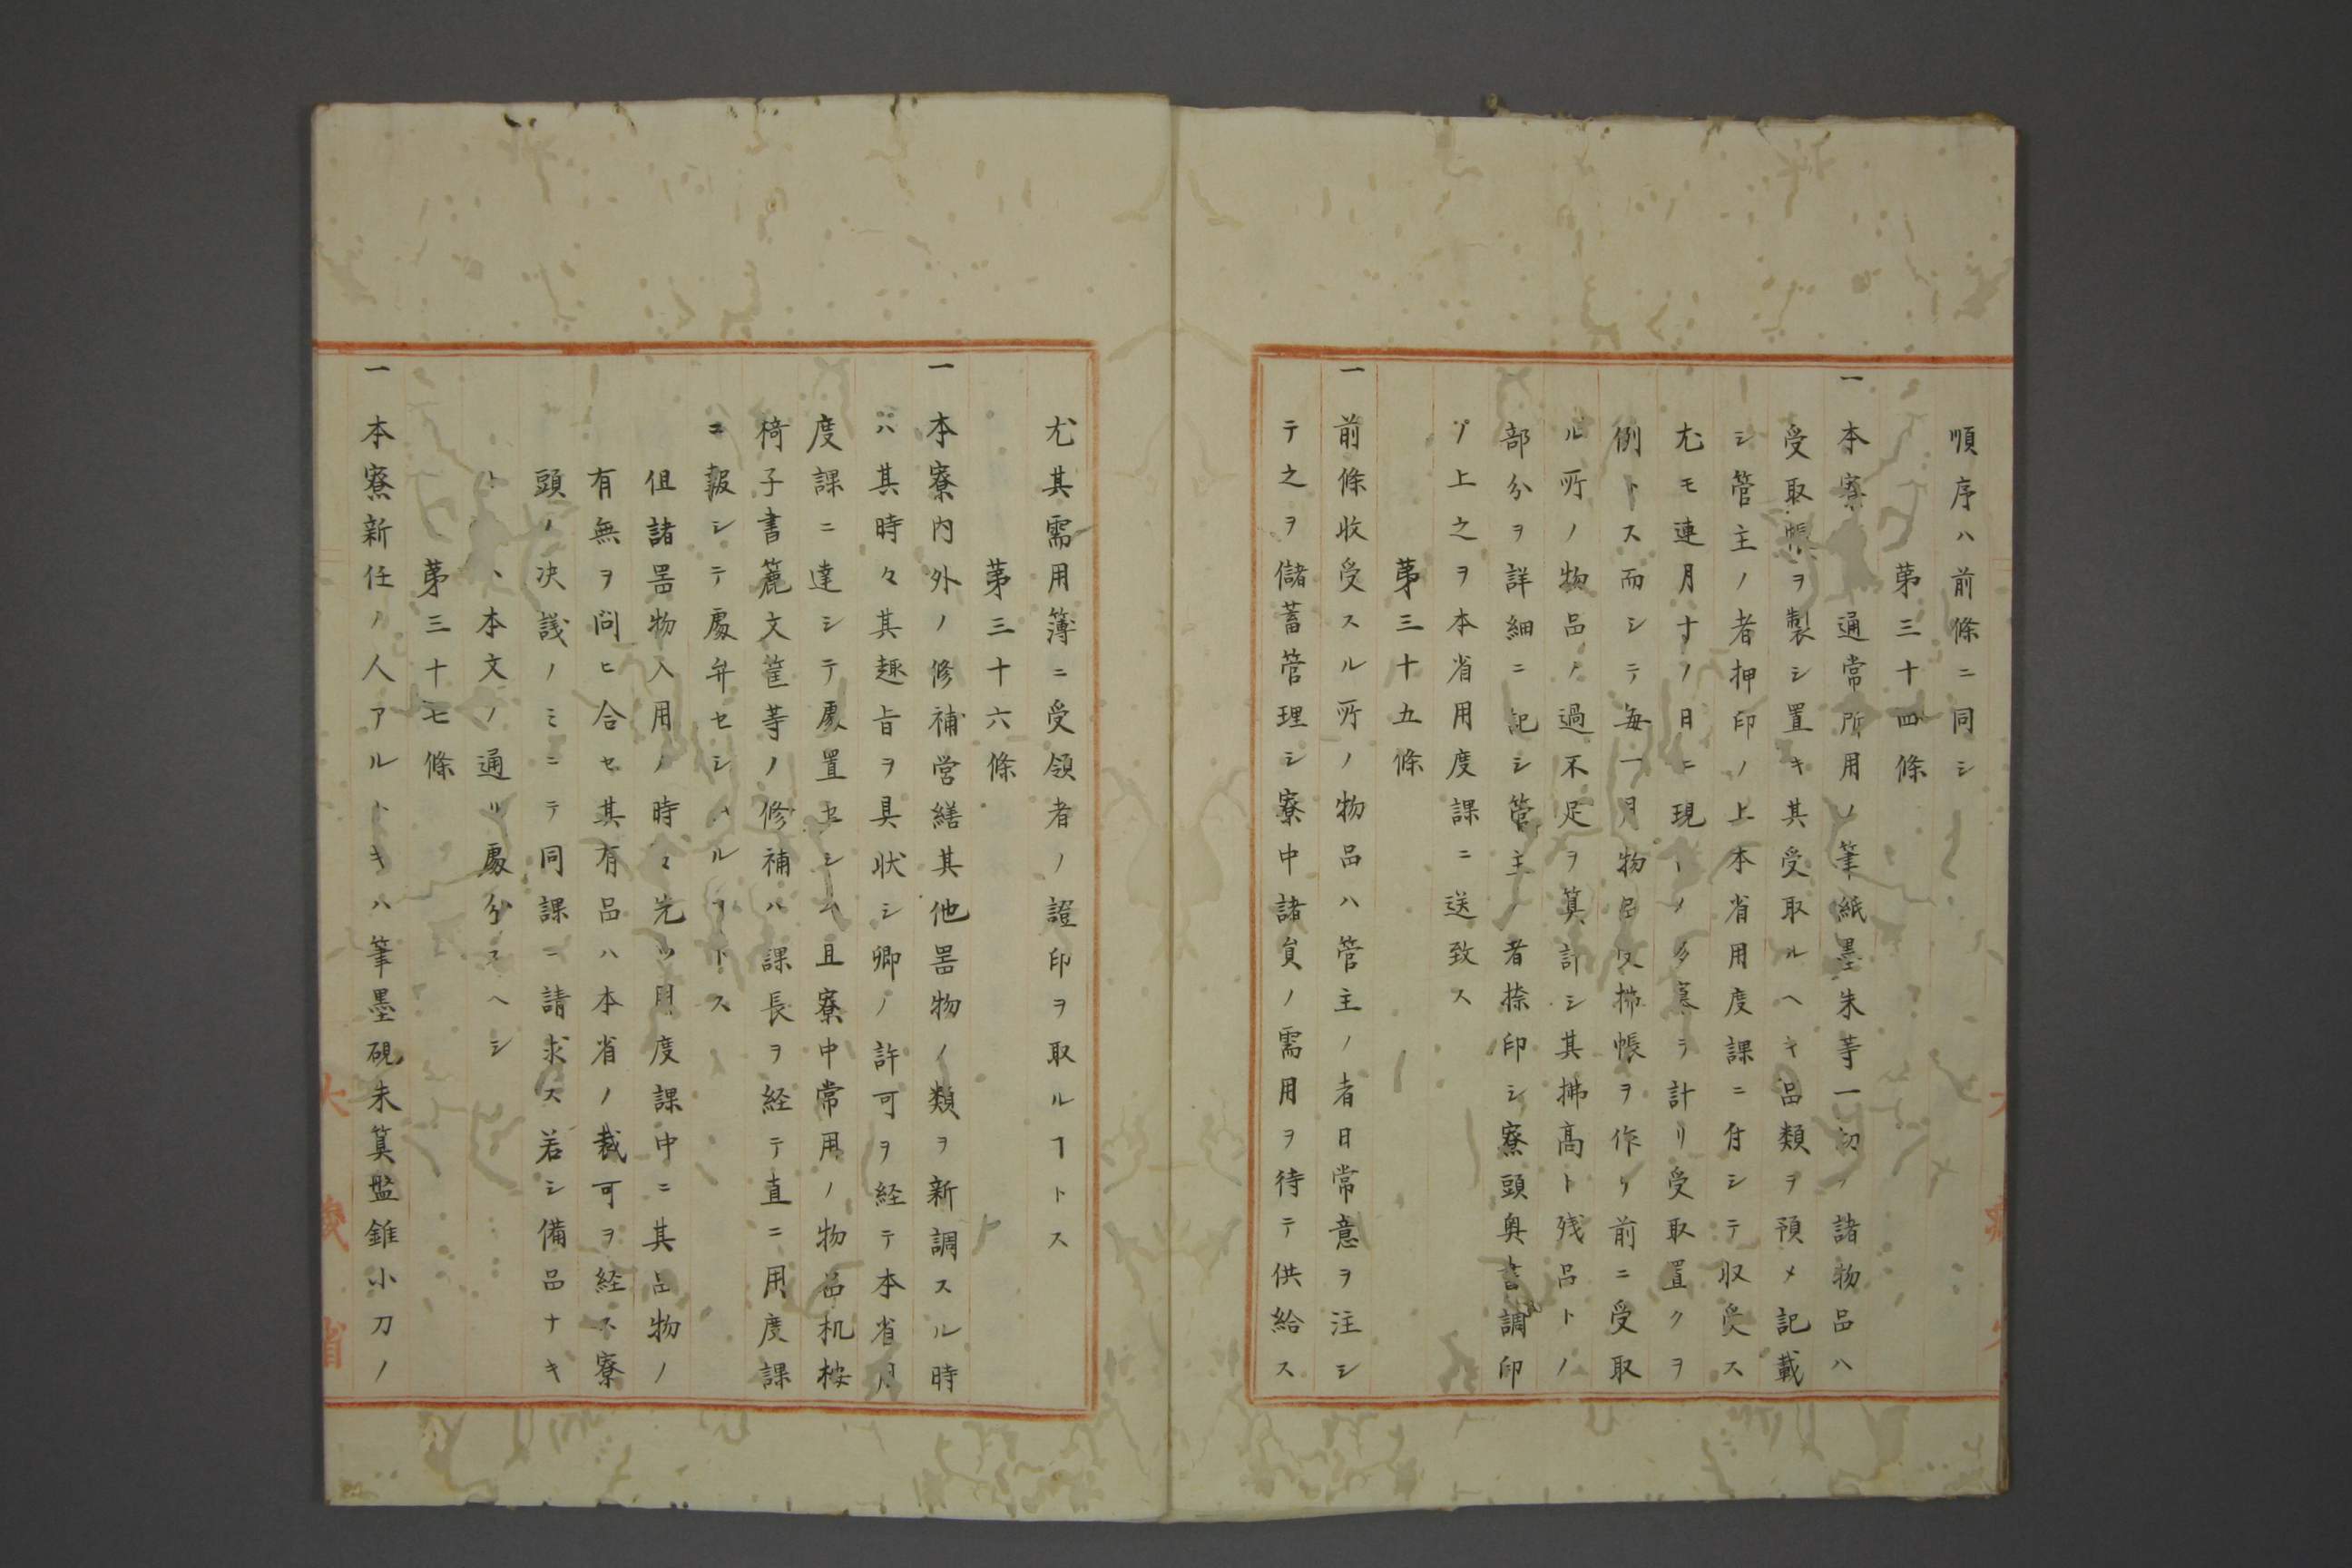 順序ハ前條ニ同シ
第三十四條
一本寮通常所用ノ筆紙墨朱等一切ノ諸物品ハ
受取帳ヲ製シ置キ其受取ルヘキ品類ヲ預メ記載
シ管主ノ者押印ノ上本省用度課ニ付シテ収受ス
尤モ連月十ノ日ニ現 ノ多寡ヲ計リ受取置クヲ
例トス而シテ毎一月物品仕拂帳ヲ作リ前ニ受取
ル所ノ物品ノ過不足ヲ算計シ其拂高ト残品トノ
部分ヲ詳細ニ記シ管主ノ者捺印シ寮頭奥書調印
ノ上之ヲ本省用度課ニ送致ス
第三十五條
一前條收受スル所ノ物品ハ管主ノ者日常意ヲ注シ
テ之ヲ儲蓄管理シ寮中諸員ノ需用ヲ待テ供給ス
尤其需用簿ニ受領者ノ證印ヲ取ルヿトス
第三十六條
一本寮内外ノ修補営繕其他噐物ノ類ヲ新調スル時
ハ其時々其趣旨ヲ具状シ卿ノ許可ヲ経テ本省用
度課ニ達シテ處置セシム且寮中常用ノ物品机桉
椅子書簏文筐等ノ修補ハ課長ヲ経テ直ニ用度課
ニ報シテ處弁セシムルヿトス
但諸噐物入用ノ時々先ツ用度課中ニ其品物ノ
有無ヲ問ヒ合セ其有品ハ本省ノ裁可ヲ経ス寮
頭ノ决議ノミニテ同課ニ請求ス若シ備品ナキ
トハ本文ノ通リ處分スヘシ
第三十七條
一本寮新任ノ人アルトキハ筆墨硯朱算盤錐小刀ノ
大藏省